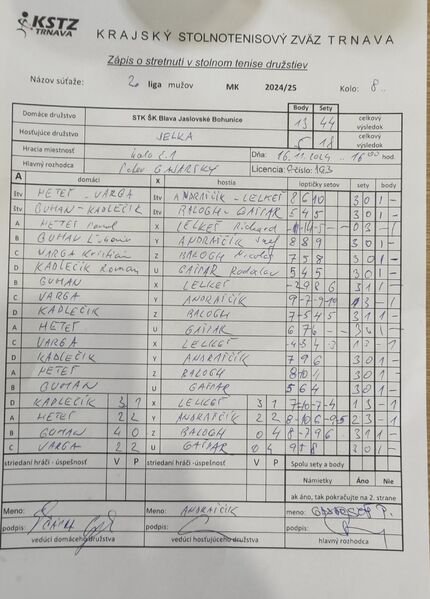 KSTZ
TRNAVA
KRAJSKÝ STOLNOTENISOVÝ ZVÄZ TRNAVA
Zápis o stretnutí v stolnom tenise družstiev
Názov súťaže: 2. liga mužov MK 2024/25 Kolo: 8.
Body Sety
Domáce družstvo STK ŠK Blava Jaslovské Bohunice 13 44 celkový výsledok
Hosťujúce družstvo JELKA 5 18 celkový výsledok
Hracia miestnosť Dňa: 16.11.2024 hod.
Hlavný rozhodca Peter Licencia: číslo:
A domáci X hostia loptičky setov sety body
štv HETEŠ - VARGA štv ANDRAŠČÍK - LELKEŠ 8 6 10 3 0 1 -
štv GUMAN - KADLEČÍK štv BALOGH - GAŠPAR 5 4 5 3 0 1 -
A HETEŠ X LELKEŠ Richard 0 3 - 1
B GUMAN Y ANDRAŠČÍK 8 8 9 3 0 1 -
C VARGA Kristián Z BALOGH Nicolas 7 5 8 3 0 1 -
D KADLEČÍK Roman U GAŠPAR Radoslav 5 4 5 3 0 1 -
B GUMAN X LELKEŠ -2 9 8 6 3 1 1 -
C VARGA Y ANDRAŠČÍK 9 -7 -9 -10 1 3 - 1
D KADLEČÍK Z BALOGH 7 -5 4 5 3 1 1 -
A HETEŠ U GAŠPAR 6 7 6 3 0 1 -
C VARGA X LELKEŠ -4 -3 4 -3 1 3 - 1
D KADLEČÍK Y ANDRAŠČÍK 7 9 6 3 0 1 -
A HETEŠ Z BALOGH 8 10 4 3 0 1 -
B GUMAN U GAŠPAR 5 6 4 3 0 1 -
D KADLEČÍK 3 1 X LELKEŠ 3 1 7 -10 -7 -4 1 3 - 1
A HETEŠ 2 2 Y ANDRAŠČÍK 2 2 8 -10 6 -9 -5 2 3 - 1
B GUMAN 4 0 Z BALOGH 0 4 8 -7 9 6 3 1 1 -
C VARGA 2 2 U GAŠPAR 0 4 3 0 1 -
striedaní hráči - úspešnosť V P striedaní hráči - úspešnosť V P Spolu sety a body
Námietky Áno Nie
ak áno, tak pokračujte na 2. strane
Meno: Meno: ANDRAŠČÍK meno:
podpis: podpis: podpis:
vedúci domáceho družstva vedúci hosťujúceho družstva hlavný rozhodca